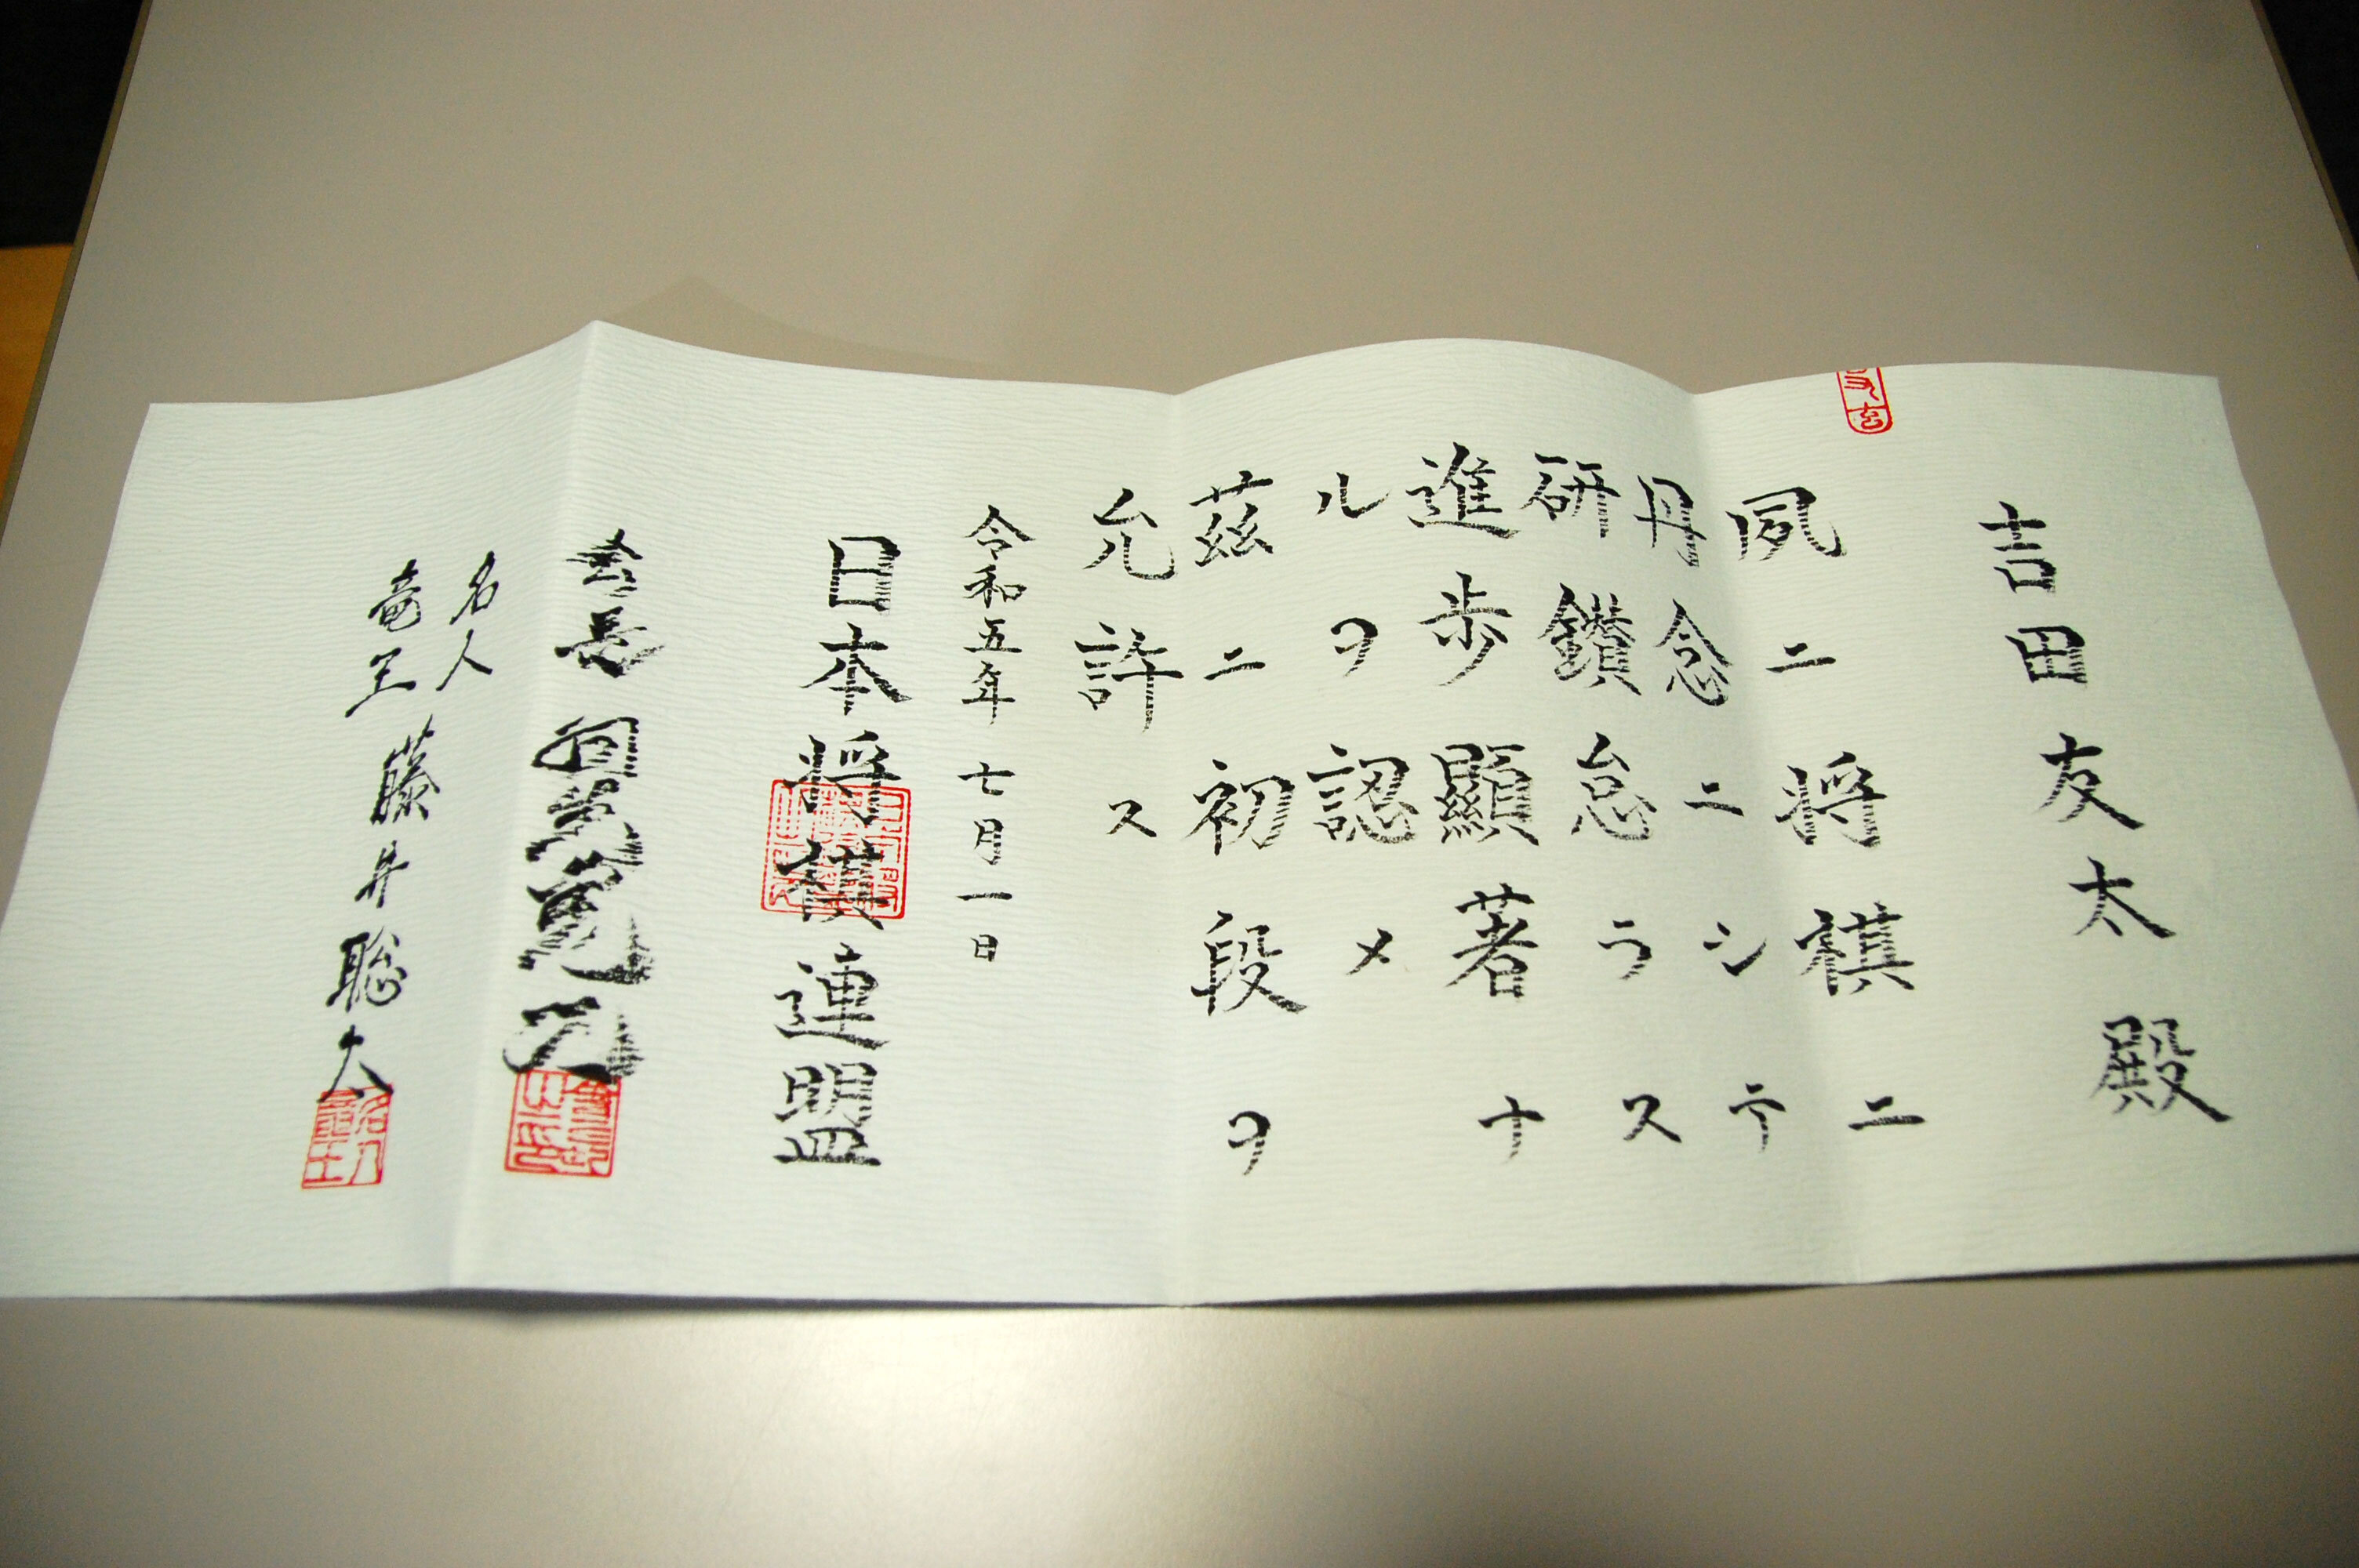 吉田友太殿
夙ニ将棋ニ
丹念ニシテ
研鑽怠ラス
進歩顯著ナ
ルヲ認メ
茲ニ初段ヲ
允許ス
令和五年七月一日
日本将棋連盟
會長
名人
竜王
藤井聡太